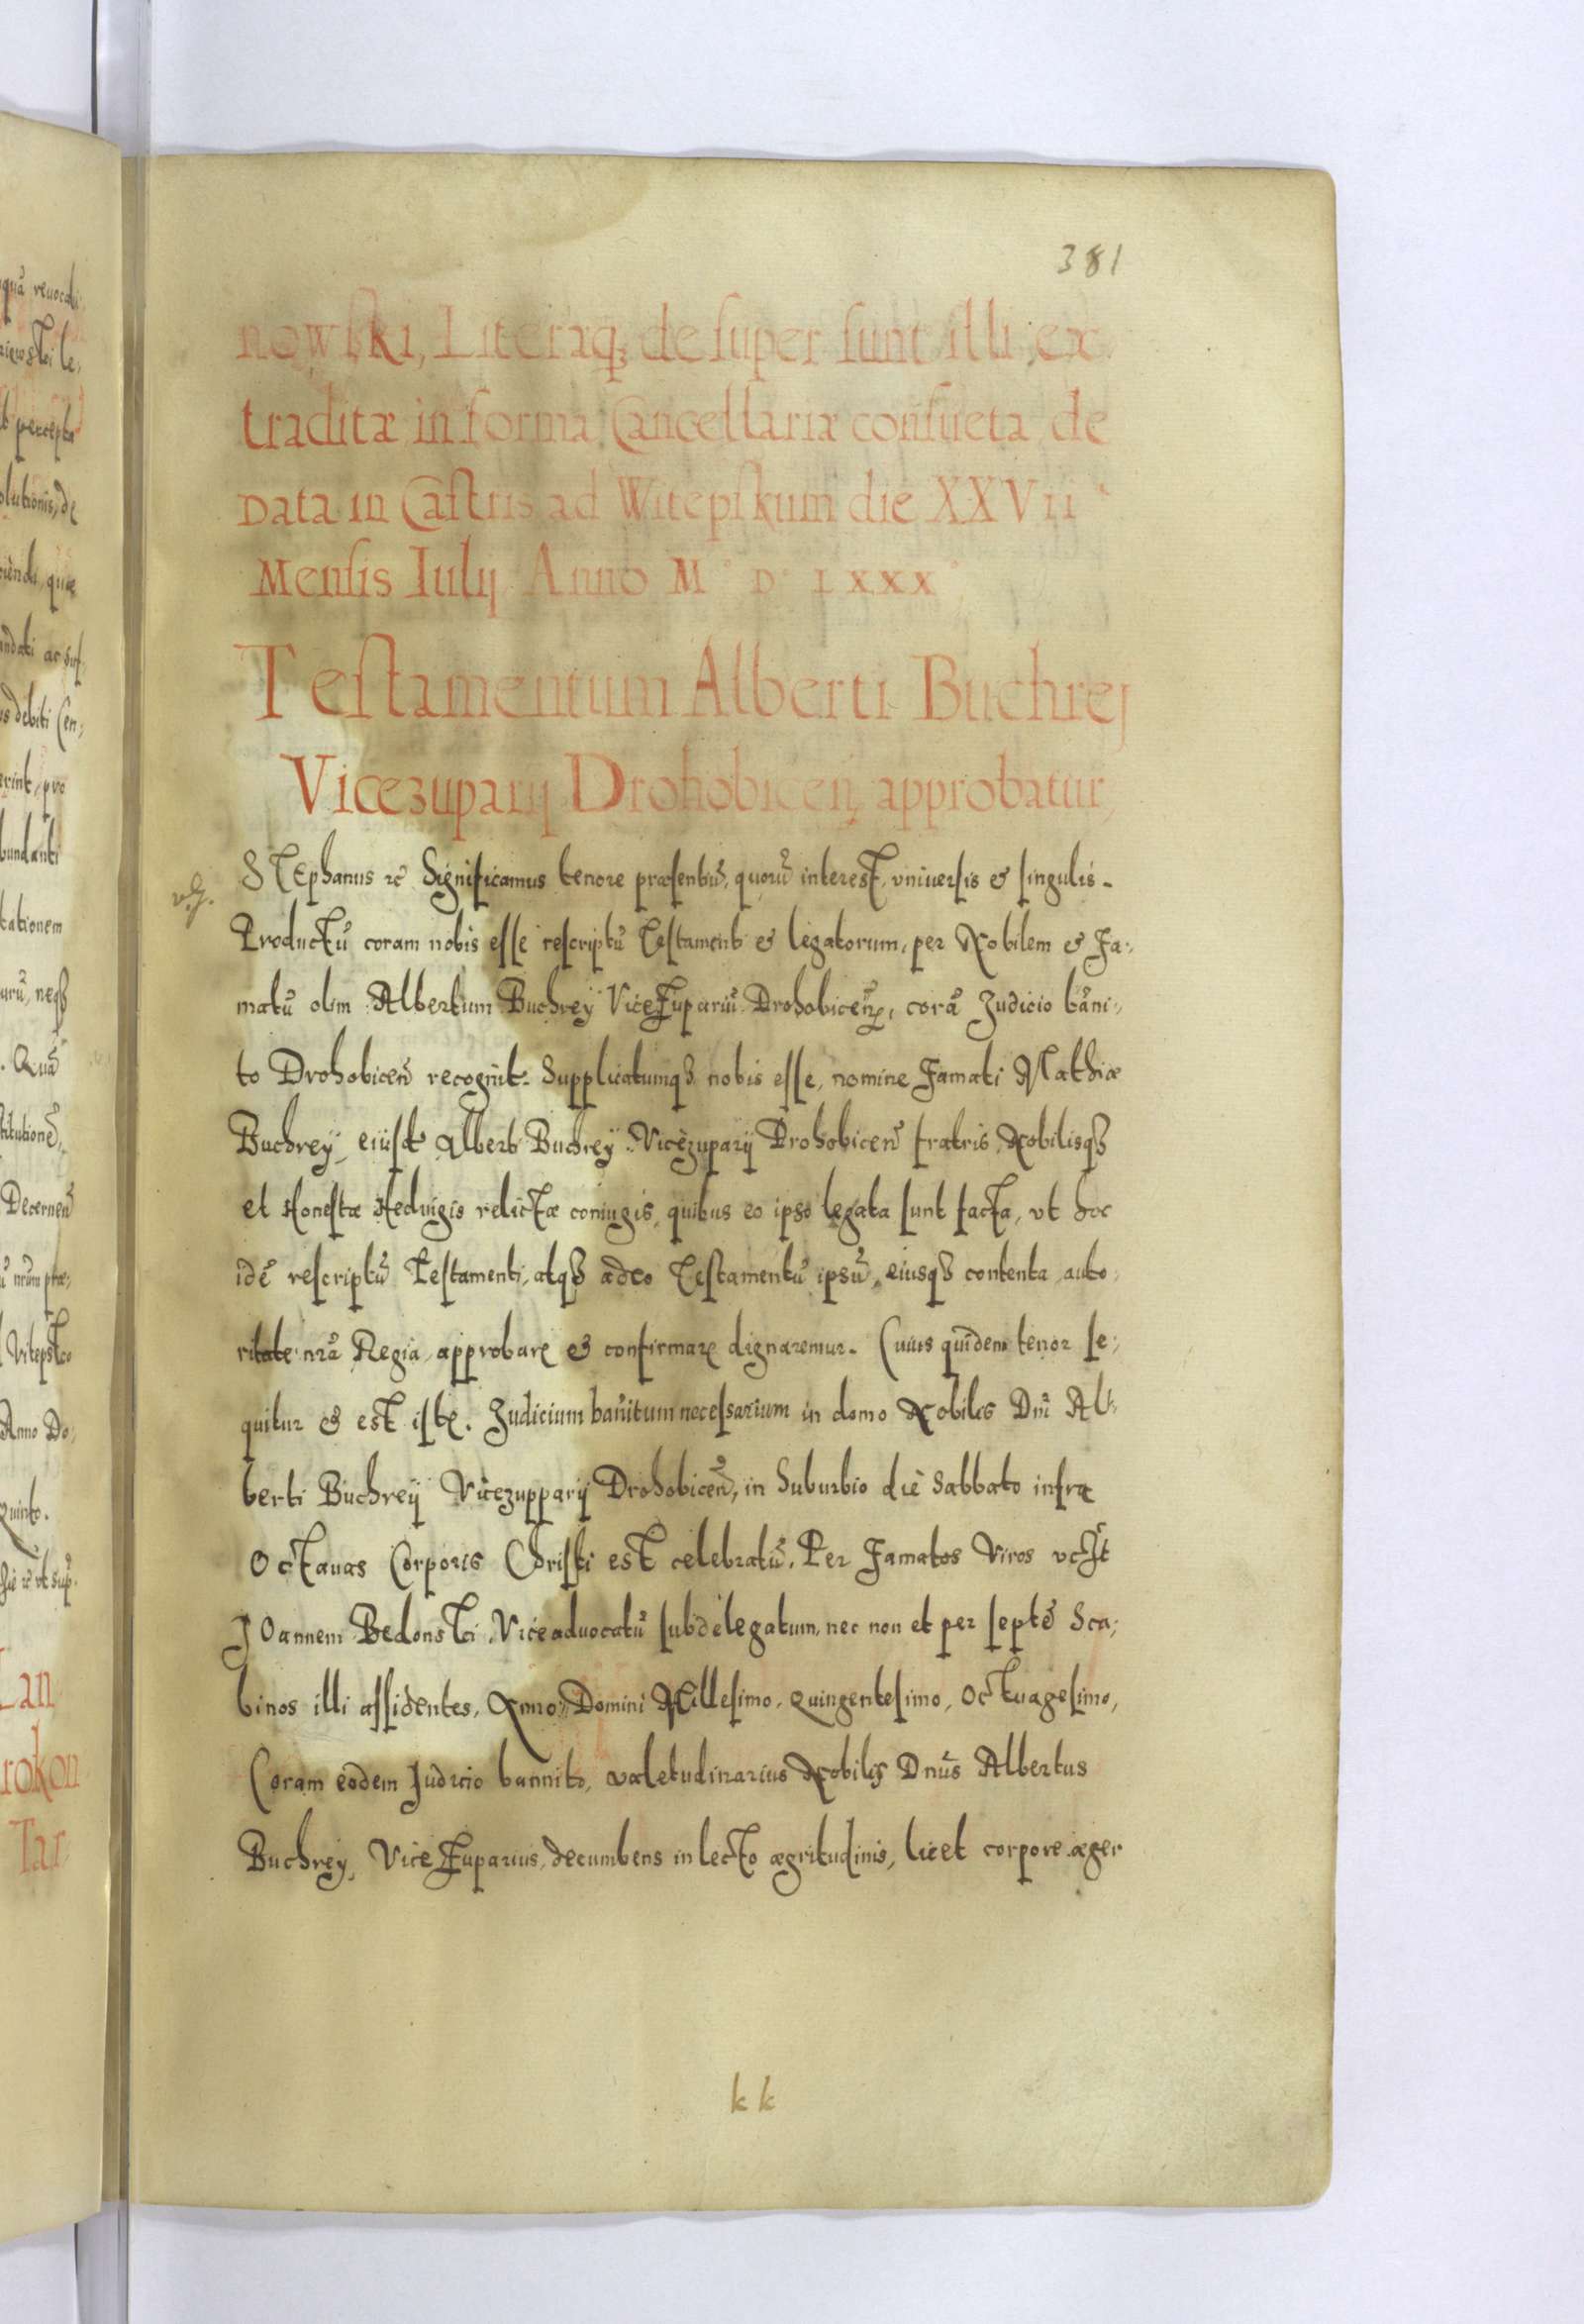 381
nowſki, Literæq₃ deſuper ſunt illi, ex,
traditæ in forma Cancellariæ conſueta, de
Data in Caſtris ad Witepſkum die XXVii
Menſis Iulij Anno M° D° LXXX°
Teſtamentum Alberti Buchrej
Vicezuparij Drohobiceñ, approbatur,
STEphanus rc̄ Significamus tenore præſentiū, quorū interest, vniuerſis & ſingulis.
Productū coram nobis eſſe reſcriptū Teſtamenti & legatorum, per Nobilem & Fa:,
matū olim Albertum Buchrey ViceZupariū Drohobiceñ, corā Judicio bāni,
to Drohobiceñ recognit. Supplicatumqȝ nobis eſſe, nomine Famati Mathiæ
Buchreÿ, eiuſd Alberti Buchreÿ Vicezuparij Drohobiceñ fratris, Nobilisqȝ
et Honeſtæ Heduigis relictæ coniugis, quibus eo ipso legata ſunt facta, vt hoc
idē reſcriptū Teſtamenti, atqȝ adeo Teſtamentū ipsū, eiusqȝ contenta auto,
ritate nr̄a Regia, approbare & confirmare dignaremur. Cuius quidem tenor ſe,
quitur & est iſte. Judicium banitum neceſsarium in domo Nobilis Dnī Al,
berti Buchreÿ Vicezupparij Drohobiceñ, in Suburbio die Sabbato infra
Octauas Corporis Chriſti est celebratū. Per Famatos Viros vczt
JOannem Bedonski, Viceaduocatū ſubdelegatum, nec non et per ſeptē Sca,
binos illi aſſidentes, Anno Domini Milleſimo, Quingenteſimo, Octuageſimo,
Coram eodem Judicio bannito, valetudinarius Nobilis Dnūs Albertus
Buchrey, ViceZuparius, decumbens in lecto ægritudinis, licet corpore æger
kk